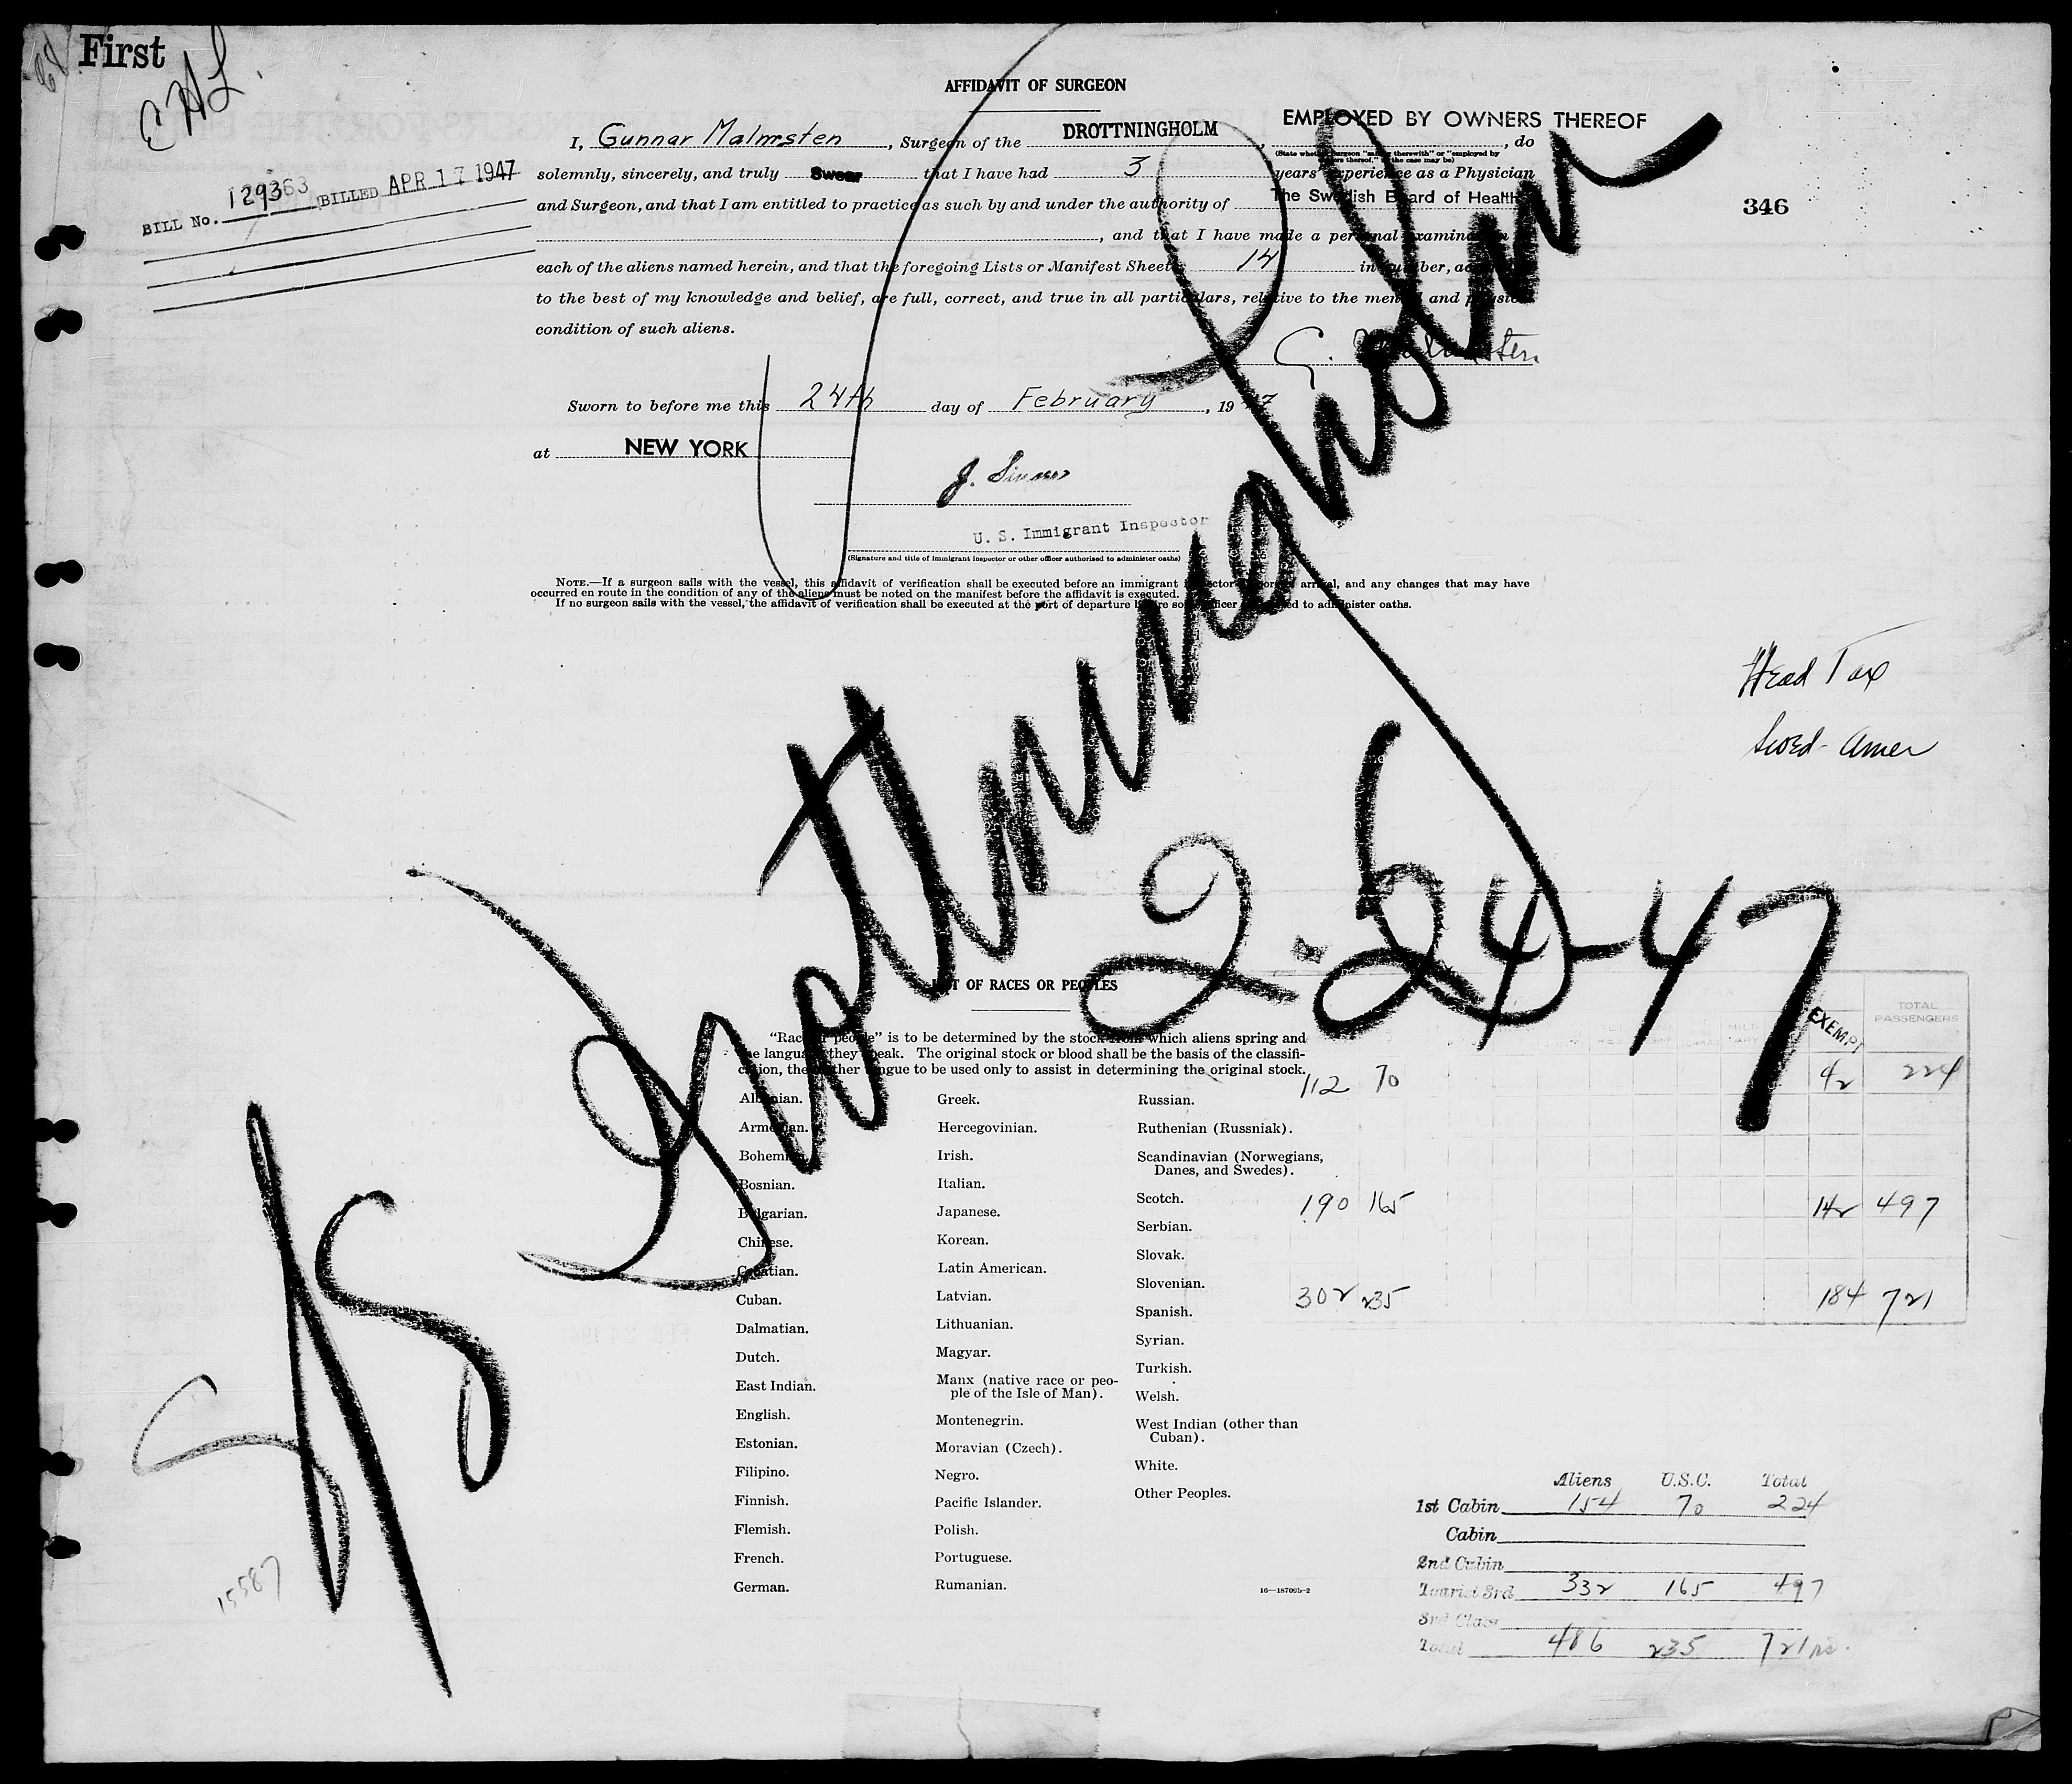 First
CHL.
AFFIDAVIT OF SURGEON
I, Gunnar Malmsten, Surgeon of the DROTTNINGHOLM, EMPLOYED BY OWNERS THEREOF, do
(State whether surgeon "sailing therewith" or "employed by owners thereof," as the case may be)
solemnly, sincerely, and truly Swear that I have had 3 years' experience as a Physician
and Surgeon, and that I am entitled to practice as such by and under the authority of The Swedish Board of Health
, and that I have made a personal examination
each of the aliens named herein, and that the foregoing Lists or Manifest Sheets 14 in number,
to the best of my knowledge and belief, are full, correct, and true in all particulars, relative to the mental and physical
condition of such aliens.
BILL No. 129363 BILLED APR 17 1947
346
Sworn to before me this 24th day of February, 1947
at NEW YORK
U. S. Immigrant Inspector
(Signature and title of immigrant inspector or other officer authorized to administer oaths)
NOTE.—If a surgeon sails with the vessel, this affidavit of verification shall be executed before an immigrant inspector upon arrival, and any changes that may have
occurred en route in the condition of any of the aliens must be noted on the manifest before the affidavit is executed.
If no surgeon sails with the vessel, the affidavit of verification shall be executed at the port of departure before some officer authorized to administer oaths.
Head Tax
Swed-Amer
S/S Drottningholm
2-24-47
LIST OF RACES OR PEOPLES
"Race or people" is to be determined by the stock from which aliens spring and
the language they speak. The original stock or blood shall be the basis of the classifi-
cation, the mother tongue to be used only to assist in determining the original stock.
Albanian.
Armenian.
Bohemian.
Bosnian.
Bulgarian.
Chinese.
Croatian.
Cuban.
Dalmatian.
Dutch.
East Indian.
English.
Estonian.
Filipino.
Finnish.
Flemish.
French.
German.
Greek.
Hercegovinian.
Irish.
Italian.
Japanese.
Korean.
Latin American.
Latvian.
Lithuanian.
Magyar.
Manx (native race or peo-
ple of the Isle of Man).
Montenegrin.
Moravian (Czech).
Negro.
Pacific Islander.
Polish.
Portuguese.
Rumanian.
Russian.
Ruthenian (Russniak).
Scandinavian (Norwegians,
Danes, and Swedes).
Scotch.
Serbian.
Slovak.
Slovenian.
Spanish.
Syrian.
Turkish.
Welsh.
West Indian (other than
Cuban).
White.
Other Peoples.
EXEMPT TOTAL PASSENGERS
112 70 42 224
190 165 142 497
302 235 184 721
Aliens U.S.C. Total
1st Cabin 154 70 224
Cabin
2nd Cabin
Tourist 3rd 332 165 497
3rd Class
Total 486 235 721
15587